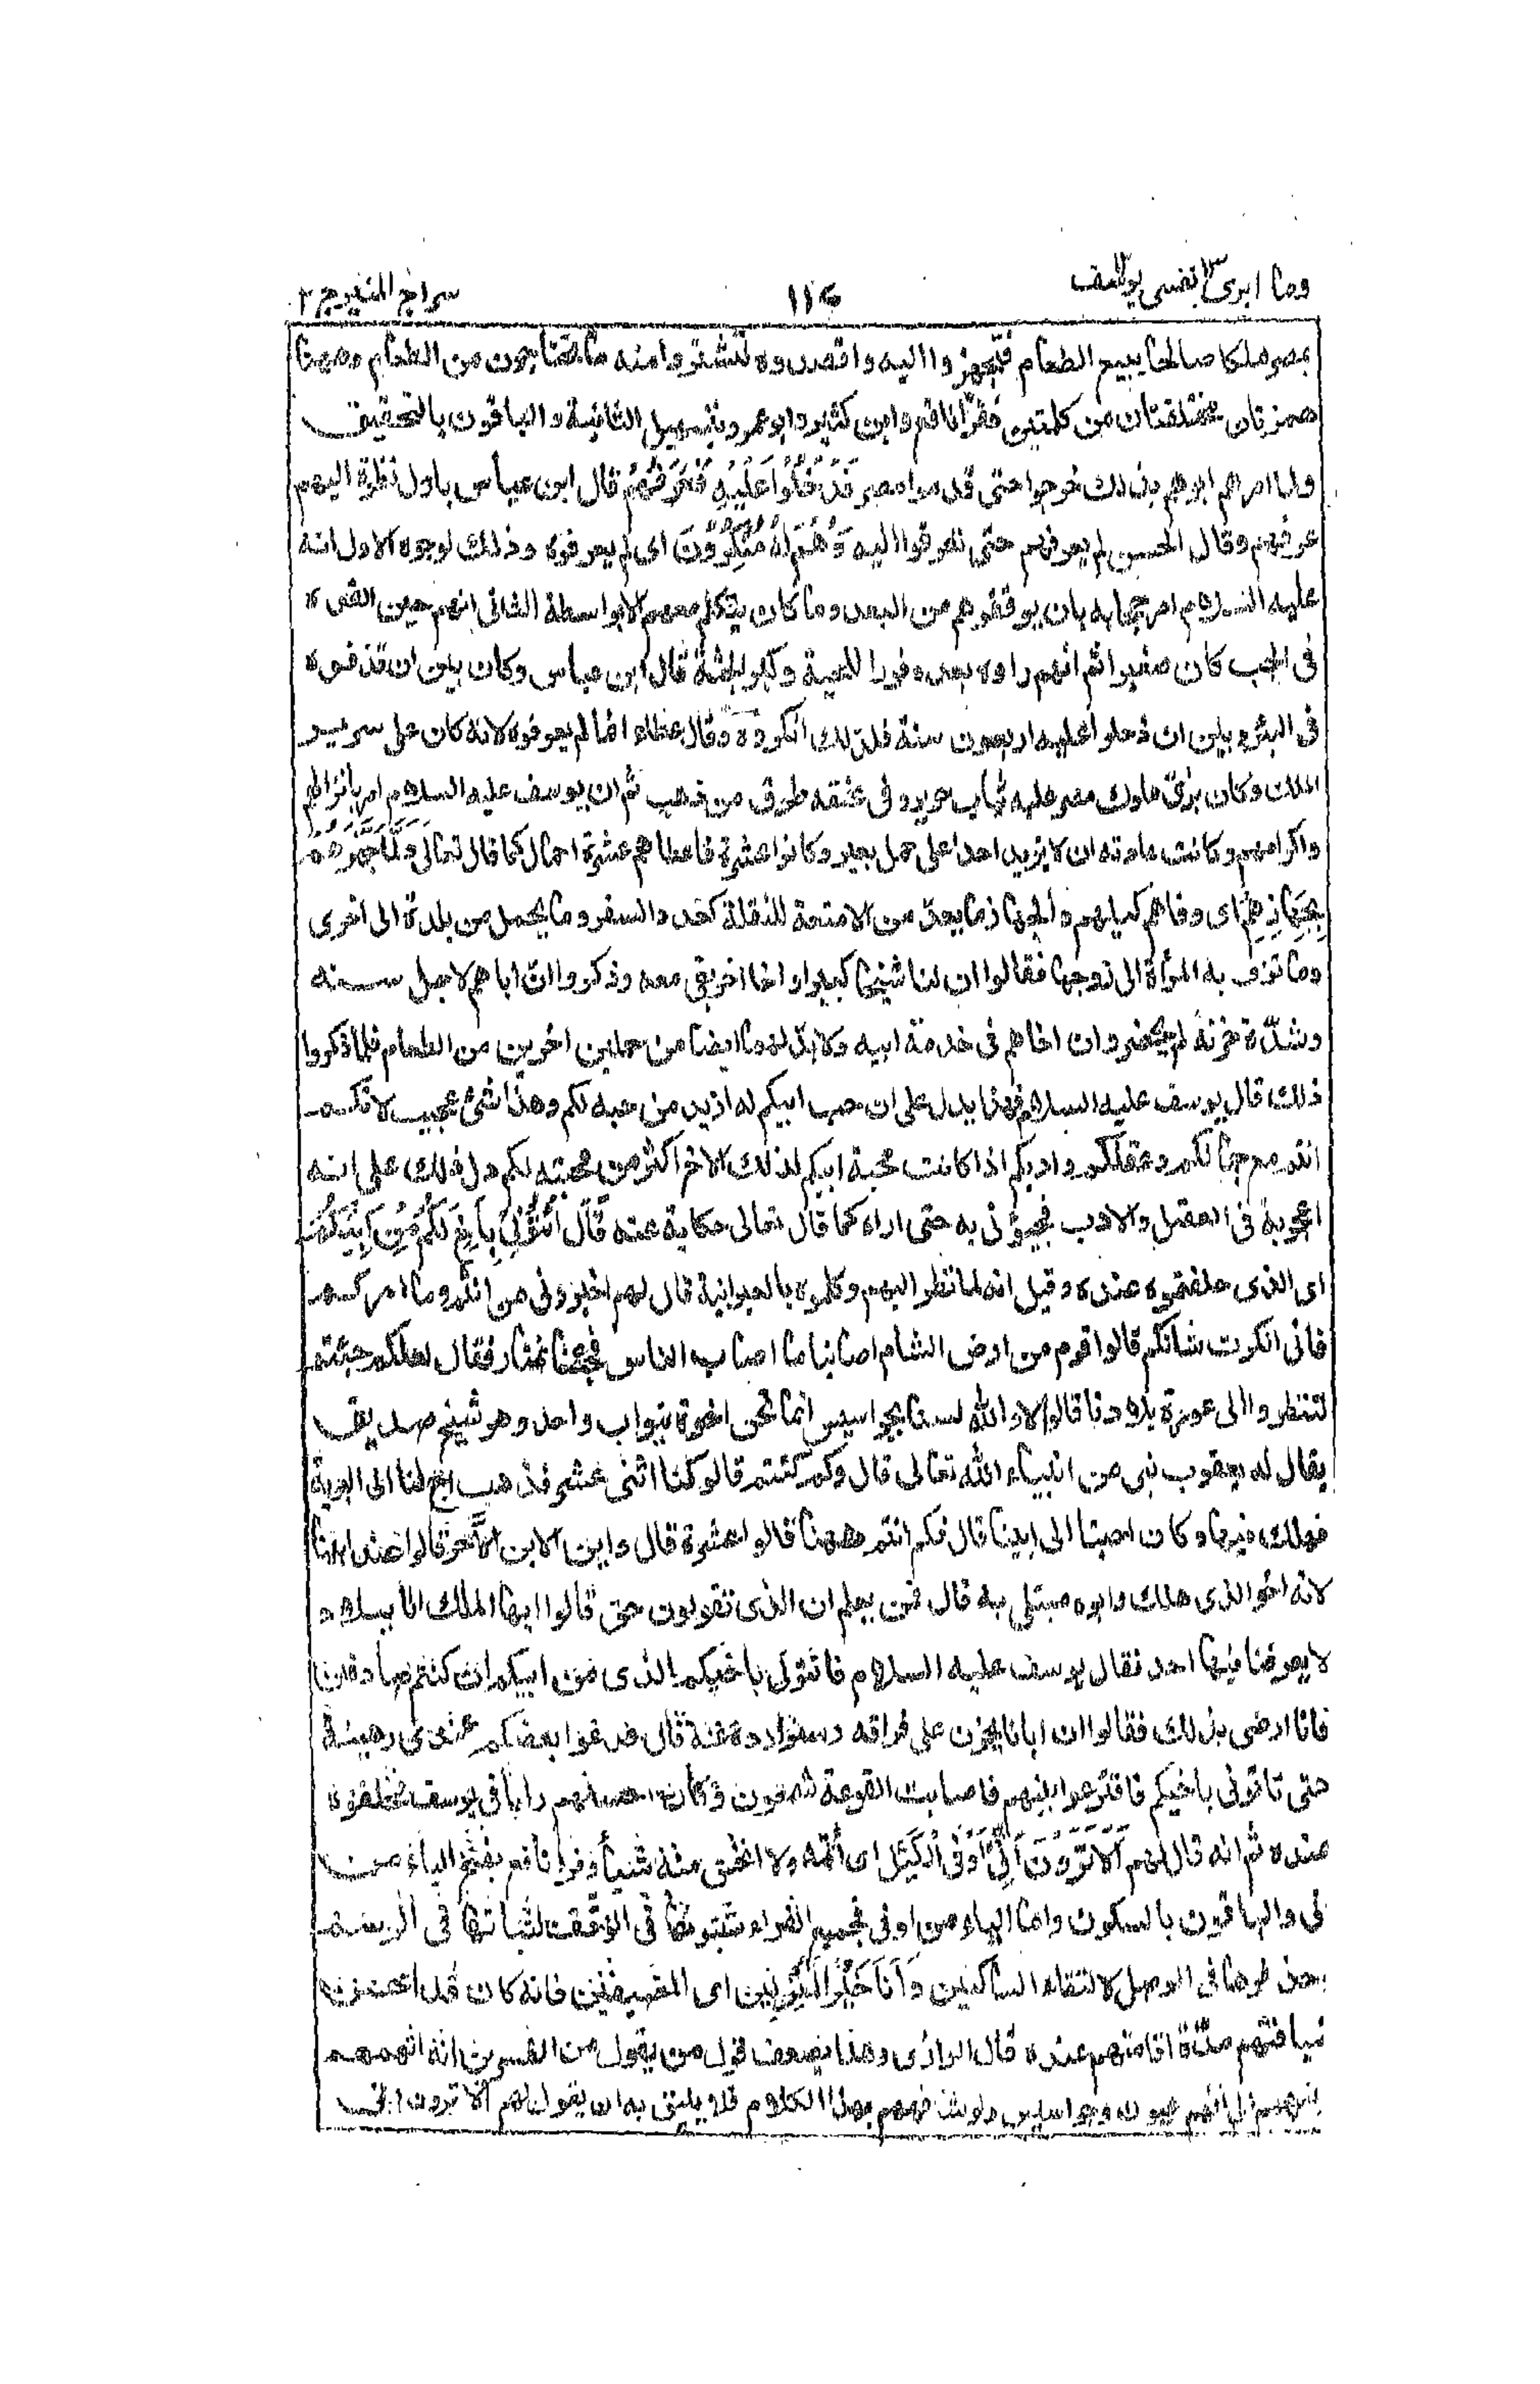 وما ابرئ نفسى يوسف
١١٤
سراج المنير ج ٢
بمصر ملكا صالحا يبيع الطعام فتجهزوا اليه واقصدوه لتشتروا منه ما تحتاجون من الطعام وههنا
همزتان مختلفتان من كلمتين فقرأ نافع وابن كثير وابو عمرو بتسهيل الثانية والباقون بالتحقيق
ولما امرهم ابوهم بذلك خرجوا حتى قدموا مصر فَدَخَلُوْا عَلَيْهِ فَعَرَفَهُمْ قال ابن عباس باول نظرة اليهم
عرفهم وقال الحسن لم يعرفهم حتى تعرفوا اليه وَهُمْ لَهٗ مُنْكِرُوْنَ اى لم يعرفوه وذلك لوجوه الاول انه
عليه السلام امر حجابه بان يوقفوهم من البعد وما كان يتكلم معهم الا بواسطة الثانى انهم حين القوه
فى الجب كان صغيرا ثم انهم راوه بعد وفور اللحية وكبر الجثة قال ابن عباس وكان بين ان قذفوه
فى البئر وبين ان دخلوا عليه اربعون سنة فلذلك انكروه وقال عطاء انما لم يعرفوه لانه كان على سرير
الملك وكان بزى ملوك مصر عليه ثياب حرير وفى عنقه طوق من ذهب ثم ان يوسف عليه السلام امر بانزالهم
واكرامهم وكانت عادته ان لا يزيد احدا على حمل بعير وكانوا عشرة فاعطاهم عشرة احمال كما قال تعالى وَلَمَّا جَهَّزَهُمْ
بِجَهَازِهِمْ اى وفاهم كيلهم والجهاز ما يعد من الامتعة للنقلة كعدد السفر وما يحمل من بلدة الى اخرى
وما تزف به المرأة الى زوجها فقالوا ان لنا شيخا كبيرا واخا اخر بقى معه وذكروا ان اباهم لاجل سنه
وشدة حزنه لم يحضر وان اخاهم فى خدمة ابيه ولا بد لهما ايضا من حملين اخرين من الطعام فلما ذكروا
ذلك قال يوسف عليه السلام فهذا يدل على ان حب ابيكم له ازيد من حبه لكم وهذا شئ عجيب لانكم
انتم مع جمالكم وعقلكم وادبكم اذا كانت محبة ابيكم لذلك الاخ اكثر من محبته لكم دل ذلك على انه
اعجوبة فى العقل والادب فجيؤنى به حتى اراه كما قال تعالى حكاية عنه قَالَ ائْتُوْنِيْ بِاَخٍ لَّكُمْ مِّنْ اَبِيْكُمْ
اى الذى خلفتموه عنده وقيل انه لما نظر اليهم وكلموه بالعبرانية قال لهم اخبرونى من انتم وما امركم
فانى انكرت شانكم قالوا قوم من ارض الشام اصابنا ما اصاب الناس فجئنا نمتار فقال لعلكم جئتم
لتنظروا الى عورة بلادنا قالوا لا والله لسنا بجواسيس انما نحن اخوة بنو اب واحد وهو شيخ صديق
يقال له يعقوب نبى من انبياء الله تعالى قال وكم كنتم قالو كنا اثنى عشر فذهب اخ لنا الى البرية
فهلك فيها وكان احبنا الى ابينا قال فكم انتم ههنا قالوا عشرة قال واين الابن الآخر قالوا عند ابينا
لانه اخو الذى هلك وابوه مبتلى به قال فمن يعلم ان الذى تقولون حق قالوا ايها الملك انا ببلاد
لا يعرفنا فيها احد فقال يوسف عليه السلام فاتونى باخيكم الذى من ابيكم ان كنتم صادقين
فانا ارضى بذلك فقالوا ان ابانا يحزن على فراقه وسنراوده عنه قال فدعوا بعضكم عندى رهينة
حتى تاتونى باخيكم فاقترعوا بينهم فاصابت القرعة شمعون وكان احسنهم رايا فى يوسف فخلفوه
عنده ثم انه قال لهم اَلَا تَرَوْنَ اَنِّيْ اُوْفِي الْكَيْلَ اى اتمه ولا ابخس منه شيأ وقرا نافع بفتح الياء من
نى والباقون بالسكون واما الياء من اوفى فجميع القراء يثبتونها فى الوقف لثباتها فى الرسم
بحذفوها فى الوصل لالتقاء الساكنين وَاَنَا خَيْرُ الْمُنْزِلِيْنَ اى المضيفين فانه كان قد احسن
ضيافتهم مدة اقامتهم عنده قال الرازى وهذا يضعف قول من يقول من المفسرين انه اتهمهم
ونسبهم الى انهم عيون وجواسيس ولو شافههم بهذا الكلام فلا يليق به ان يقول لهم الا ترون انى